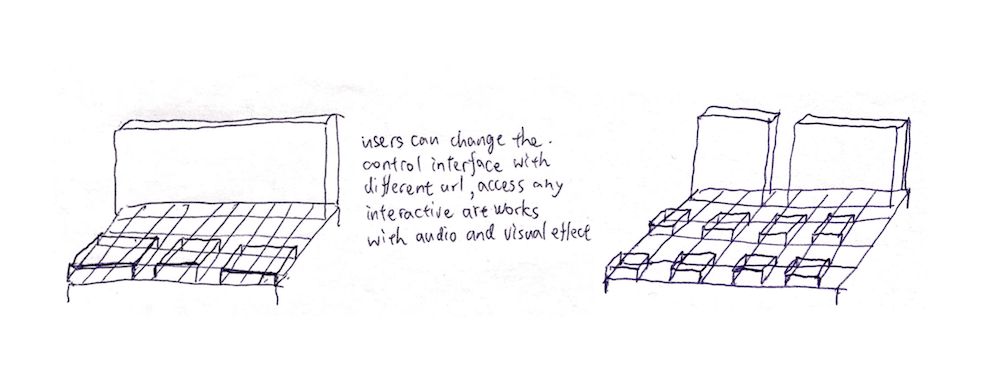 users can change the.
control interface with
different url, access any
interactive art works
with audio and visual effect